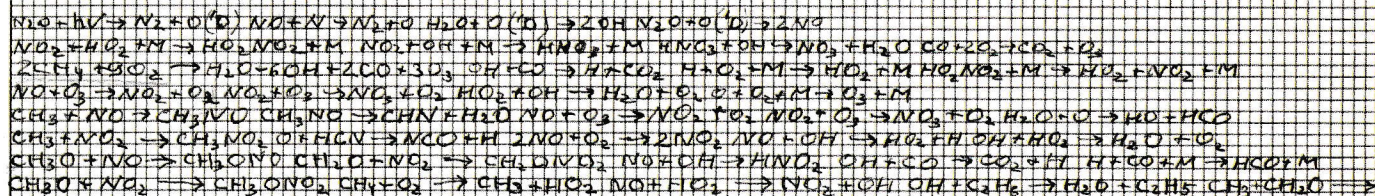 N2O + hV → N2 + O('D) NO + N → N2 + O H2O + O('D) → 2OH N2O + O('D) → 2NO
NO2 + HO2 + M → HO2NO2 + M NO2 + OH + M → HNO3 + M HNO3 + OH → NO3 + H2O CO + 2O2 → CO2 + O3
2CH4 + 9O2 → H2O + 6OH + 2CO + 3O3 OH + CO → H + CO2 H + O2 + M → HO2 + M HO2NO2 + M → HO2 + NO2 + M
NO + O3 → NO2 + O2 NO2 + O3 → NO3 + O2 HO2 + OH → H2O + O2 O + O2 + M → O3 + M
CH3 + NO → CH3NO CH3NO → CHN + H2O NO + O3 → NO2 + O2 NO2 + O3 → NO3 + O2 H2O + O → HO + HCO
CH3 + NO2 → CH3NO2 O + HCN → NCO + H 2NO + O2 → 2NO2 NO + OH → HO2 + H OH + HO2 → H2O + O2
CH3O + NO → CH3ONO CH2O + NO2 → CH2ONO2 NO + OH → HNO2 OH + CO → CO2 + H H + CO + M → HCO + M
CH3O + NO2 → CH3ONO2 CH4 + O2 → CH3 + HO2 NO + HO2 → NO2 + OH OH + C2H6 → H2O + C2H5 CH3 + CH2O →